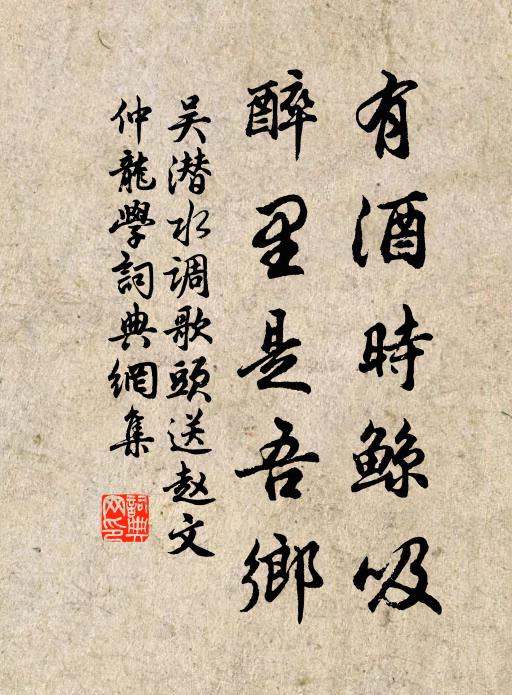 有酒時鲸吸
醉里是吾鄉
吴潜水调歌頭送赵文
仲龍學詞典網集
詞典
网印